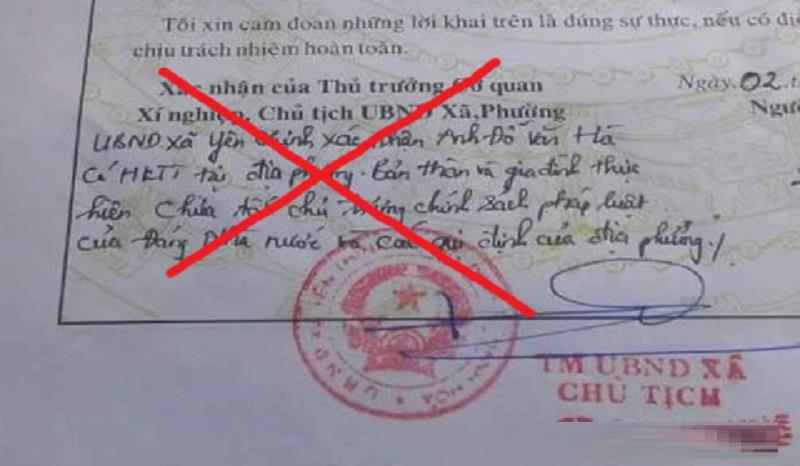 Tôi xin cam đoan những lời khai trên là đúng sự thực, nếu có điề
chịu trách nhiệm hoàn toàn.
Xác nhận của Thủ trưởng Cơ quan
Ngày.02.t
Xí nghiệp, Chủ tịch UBND Xã,Phường
Ngườ
UBND xã Yên Thịnh xác nhận Anh Đỗ Văn Hà
Có HKTT tại địa phương. Bản thân và gia đình thực
hiện chưa tốt chủ trương chính sách pháp luật
của Đảng Nhà nước và các qui định của địa phương./
TM UBND XÃ
CHỦ TỊCH